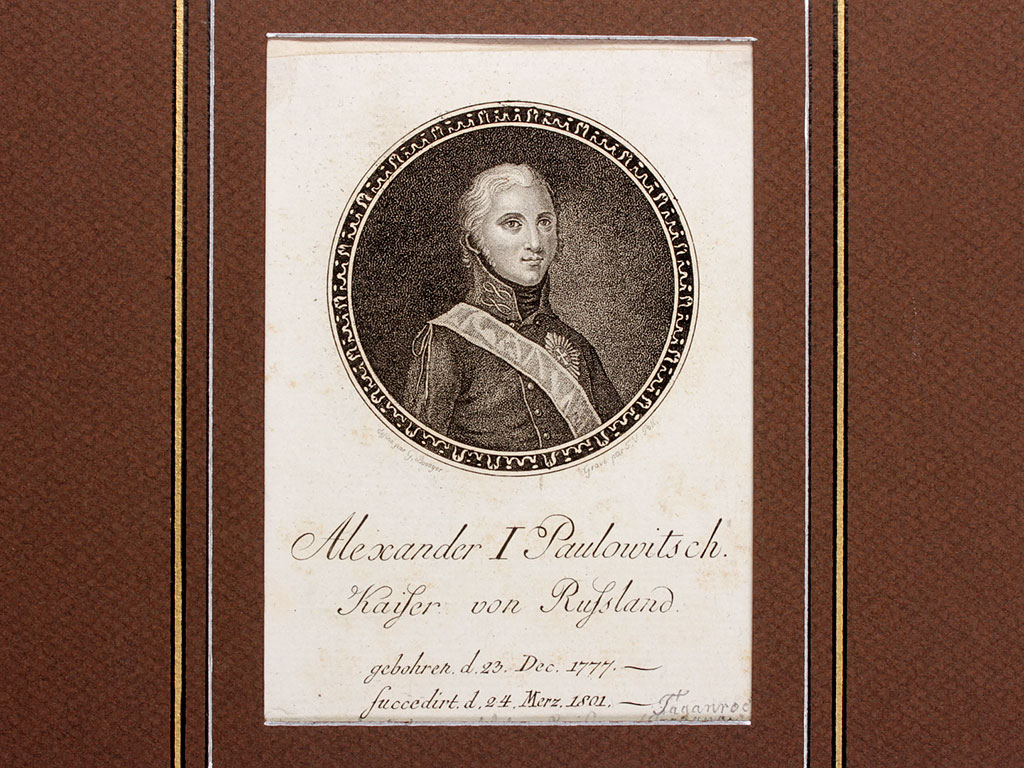 par G.
Gravé par
Alexander I Paulowitsch.
Kaiſer von Ruſsland.
gebohren. d. 23. Dec. 1777. —
ſuccedirt. d. 24. Merz. 1801. —
Taganroc